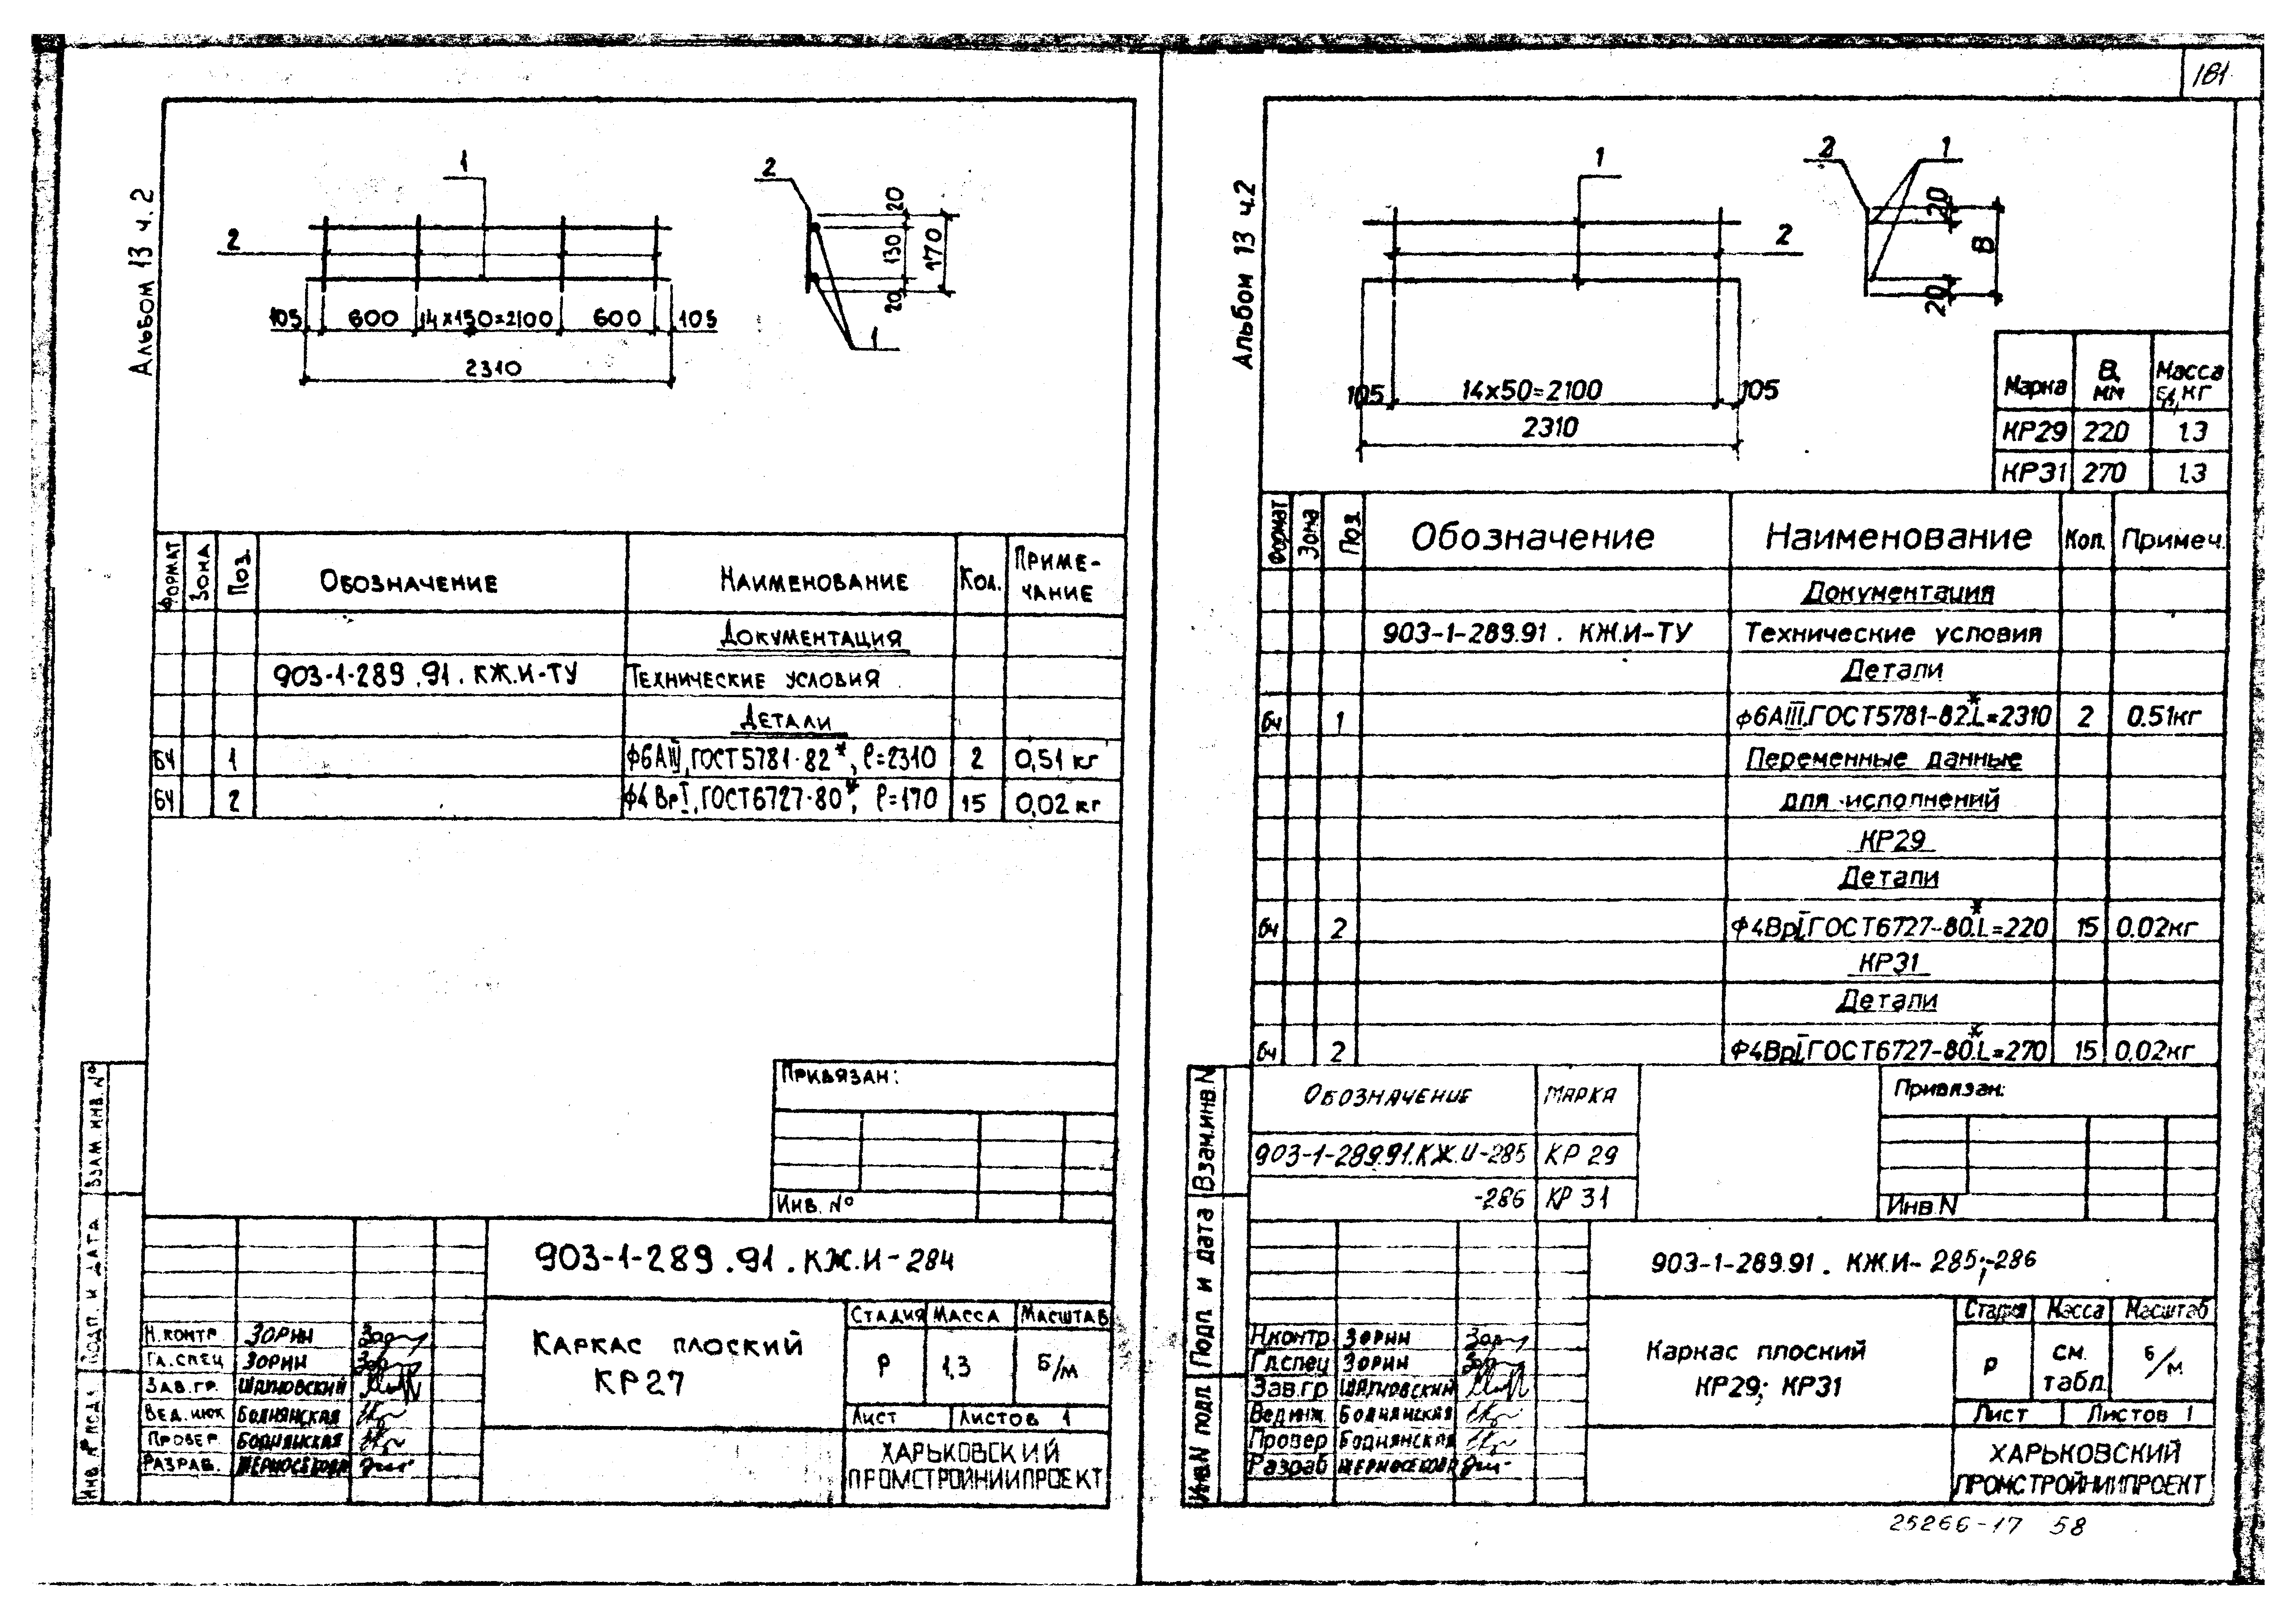 181
Альбом 13 ч. 2
1
2
105 600 14х150=2100 600 105
2310
2
20
130
170
20
1
Формат Зона Поз. Обозначение Наименование Кол. Приме-
чание
Документация
903-1-289.91.КЖ.И-ТУ Технические условия
Детали
БЧ 1 ф6АIII, ГОСТ5781-82*, ℓ=2310 2 0,51 кг
БЧ 2 ф4 ВрI, ГОСТ6727-80*, ℓ=170 15 0,02 кг
Привязан:
Инв. №
Взам. инв. №
Подп. и дата
Инв. № подл.
903-1-289.91.КЖ.И-284
Н.контр. Зорин
Гл.спец Зорин
Зав.гр. Шапновский
Вед.инж Боднянская
Провер. Боднянская
Разраб.
Каркас плоский
КР27
Стадия Масса Масштаб
Р 1,3 Б/м
Лист Листов 1
Харьковский
Промстройниипроект
Альбом 13 ч.2
1
2
105 14х50=2100 105
2310
2 1
20
В
20
Марка В, мм Масса ед, кг
КР29 220 1.3
КР31 270 1.3
Формат Зона Поз. Обозначение Наименование Кол. Примеч.
Документация
903-1-289.91. КЖ.И-ТУ Технические условия
Детали
бч 1 ф6АIII.ГОСТ5781-82*.L=2310 2 0.51кг
Переменные данные
для исполнений
КР29
Детали
бч 2 ф4ВрI.ГОСТ6727-80*.L=220 15 0.02кг
КР31
Детали
бч 2 ф4ВрI.ГОСТ6727-80*.L=270 15 0.02кг
Обозначение Марка
903-1-289.91.КЖ.И-285 КР 29
-286 КР 31
Привязан:
Инв N
Взам.инв.N
Подп и дата
Инв.N подл
903-1-289.91. КЖ.И-285;-286
Н.контр Зорин
Гл.спец Зорин
Зав.гр Шапновский
Вед.инж. Боднянская
Провер Боднянская
Разраб
Каркас плоский
КР29; КР31
Стадия Масса Масштаб
Р см. табл. Б/м
Лист Листов 1
Харьковский
Промстройниипроект
25266-17 58